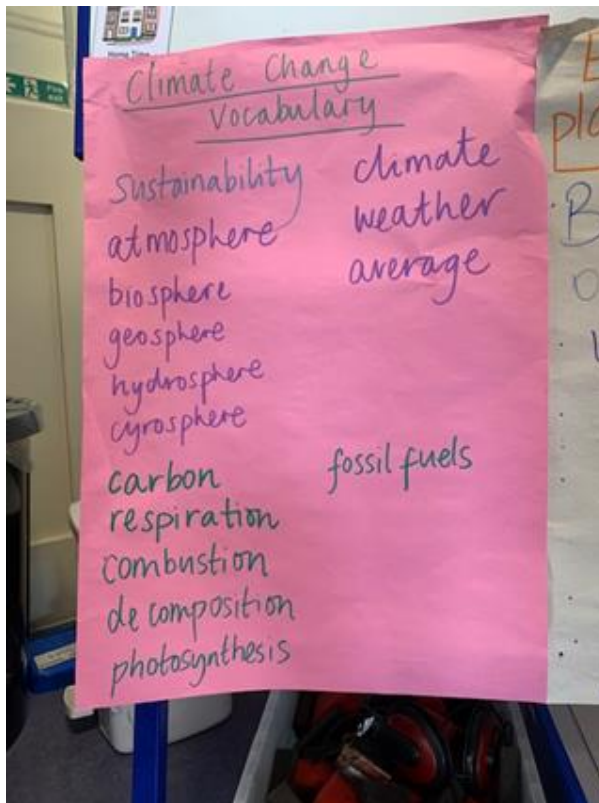 Climate Change
Vocabulary
sustainability
atmosphere
biosphere
geosphere
hydrosphere
cyrosphere
carbon
respiration
combustion
decomposition
photosynthesis
climate
weather
average
fossil fuels